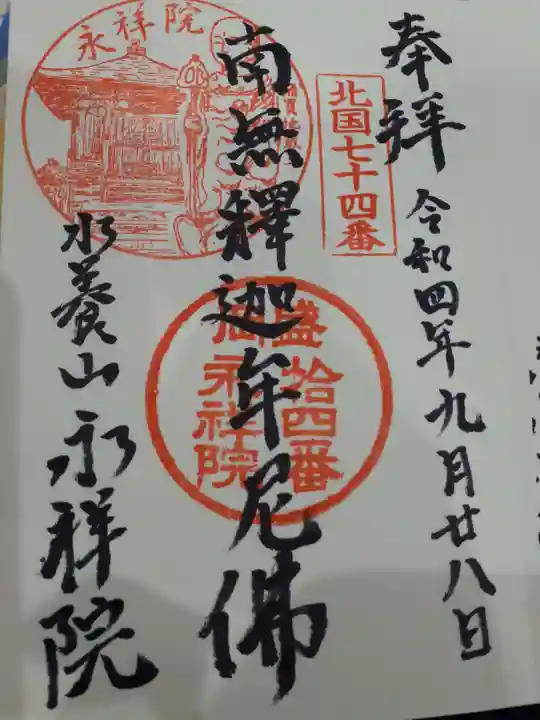 奉拝
令和四年九月廿八日
北国七十四番
南無釋迦牟尼佛
永祥院
拾四番
永祥院
水養山永祥院